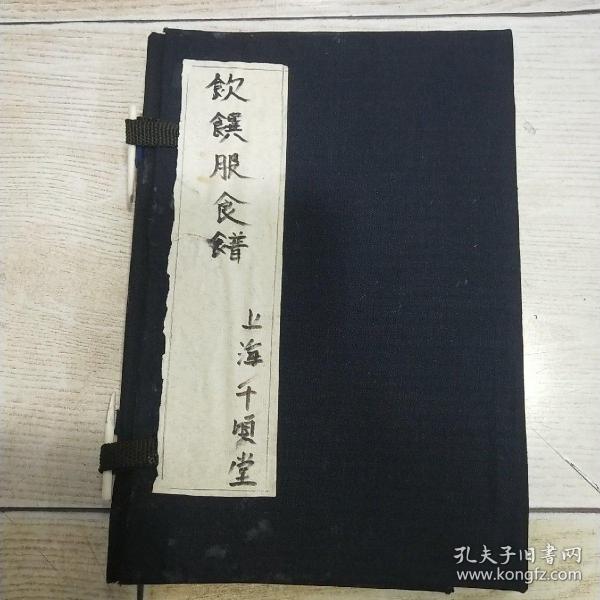 飲饌服食譜
上海千頃堂
孔夫子旧書网
www.kongfz.com